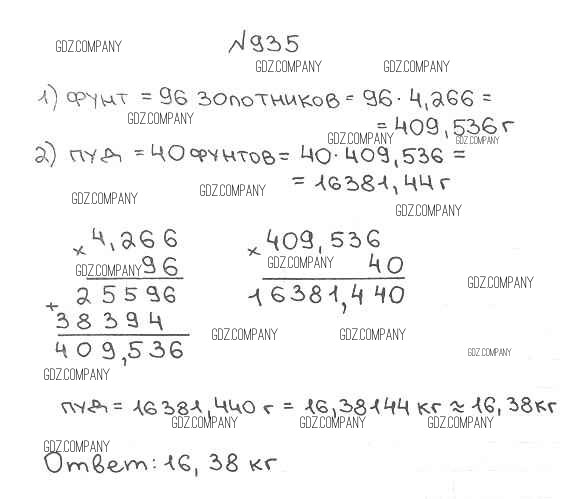 №935
GDZ.COMPANY
GDZ.COMPANY GDZ.COMPANY
1) ФУНТ = 96 ЗОЛОТНИКОВ = 96 · 4,266 =
GDZ.COMPANY
= 409,536 г
GDZ.COMPANY GDZ.COMPANY
2) ПУД = 40 ФУНТОВ = 40 · 409,536 =
= 16381,44 г
GDZ.COMPANY GDZ.COMPANY
GDZ.COMPANY
4,266 409,536
× ×
GDZ.COMPANY 96 GDZ.COMPANY 40
GDZ.COMPANY
+ 25596 16381,440
38394
GDZ.COMPANY GDZ.COMPANY
409,536 GDZ.COMPANY
GDZ.COMPANY
ПУД = 16381,440 г = 16,38144 кг ≈ 16,38кг
GDZ.COMPANY GDZ.COMPANY GDZ.COMPANY
GDZ.COMPANY
Ответ: 16,38 кг